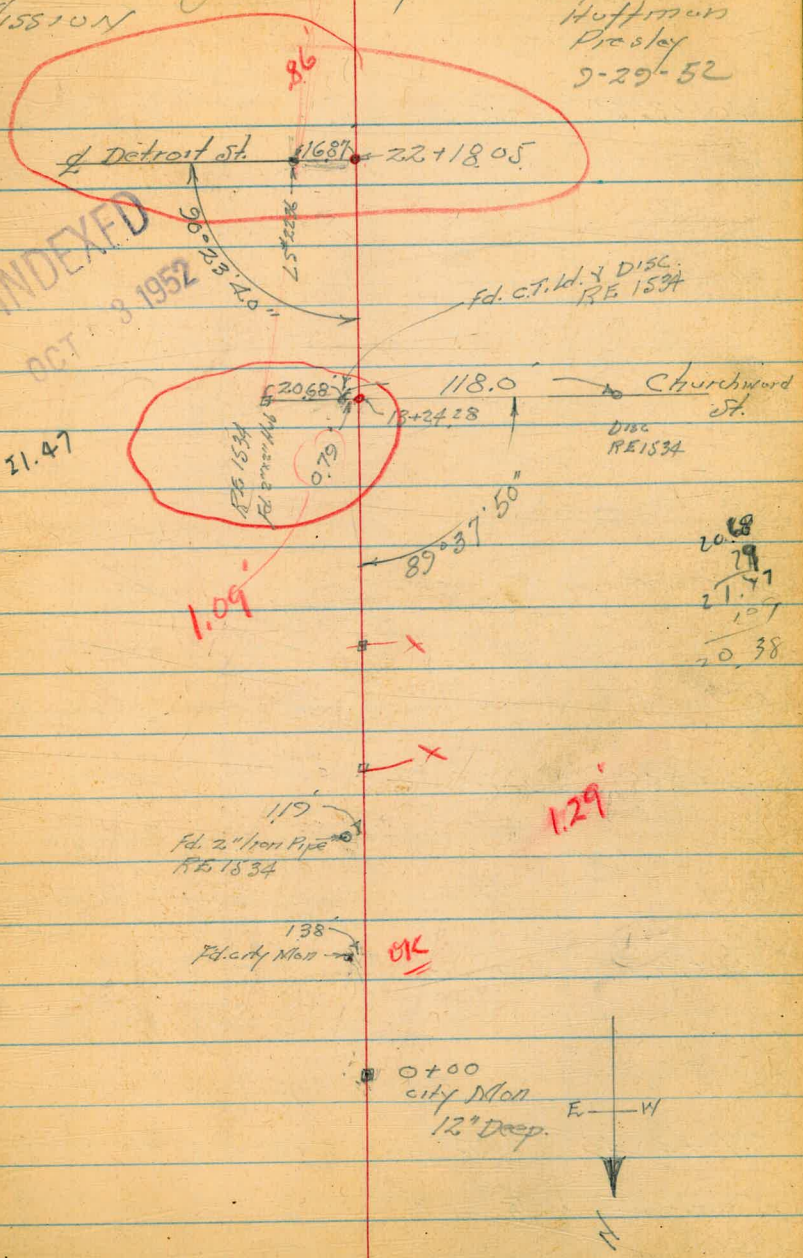 Huffman
Presley
9-29-52
.86'
℄ Detroit St.
16.87
22+18.05
90°23'40"
LS#2296
INDEXED
OCT 3 1952
Fd. C.T. Ld. & Disc.
RE 1534
20.68'
118.0'
Churchward
St.
13+24.28
Disc
RE1534
RE 1534
Fd. 2"x2" Hub
0.79'
21.47
89°37'50"
1.09'
20.68
79
21.47
1.09
20.38
X
X
1.19'
Fd. 2" Iron Pipe
RE 1534
1.29'
1.38'
Fd. city Mon
OK
0+00
city Mon
12" Deep.
E W
N